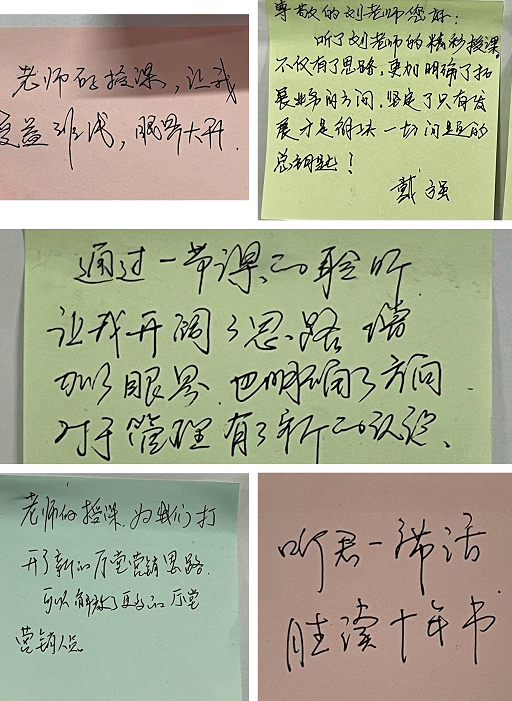 老师的授课，让我
受益匪浅，眼界大开.
尊敬的刘老师您好：
听了刘老师的精彩授课
不仅有了思路，更加明确了拓
展业务的方向，坚定了只有发
展才是解决一切问题的
总钥匙！
戴强
通过一节课的聆听
让我开阔了思路 增
加了眼界 也明确了方向
对于管理有了新的认识、
老师的授课.为我们打
开了新的厅堂营销思路.
可以解放了更多的厅堂
营销人员
听君一席话
胜读十年书